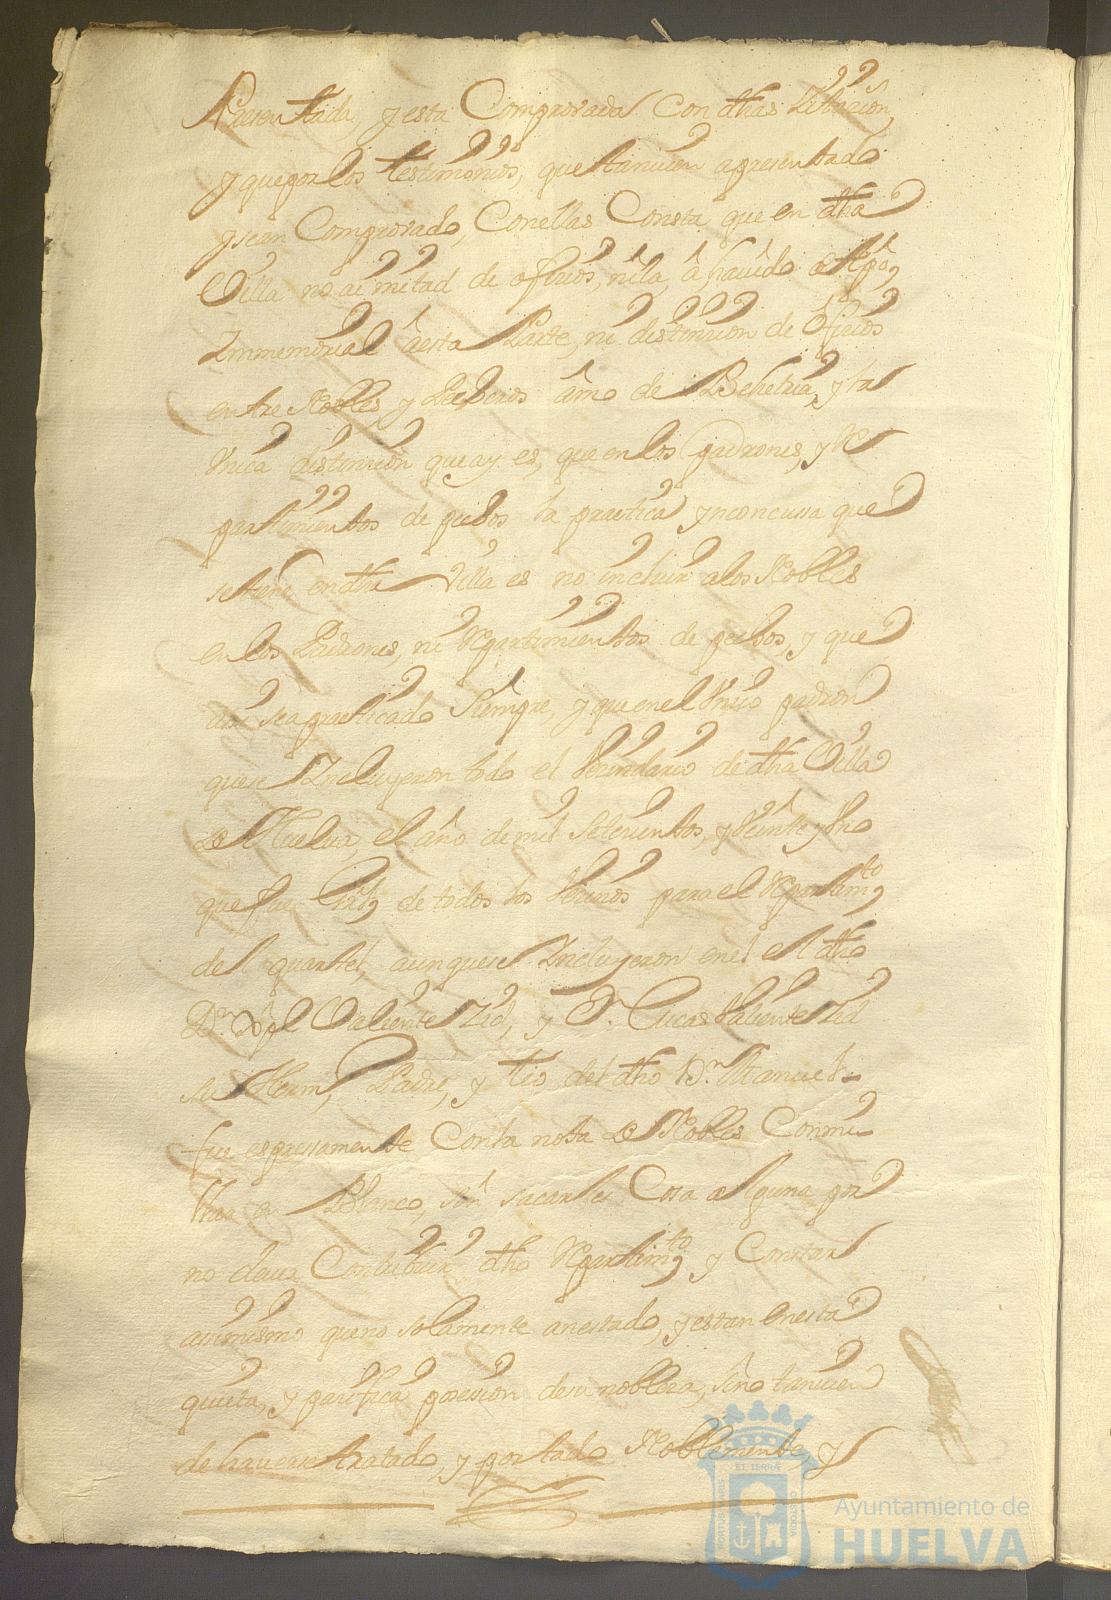 Presentada, y esta Comprovada Con dhas Zitazion,
y que por los testimonios, que tanvien apresentado
y sean Comprovado, Conellas Consta que en dha
Villa no ai mitad de ofizios, nila, â havido
Ynmemorial aesta Parte, ni distinzion de Ofizios
entre Nobles, y Pecheros âmo de Behetria, y la
Vnica distinzion que ay es, que en los padrones, y Re
partimientos de pechos la practica ynconcussa que
setiene en dha Villa es no incluir alos Nobles
en los Padrones, ni Repartimientos de pechos, y que
assi sea practicado Siempre, y que en el Vnico padron
que se Yncluyeron todo el Vezindario de dha Villa
de Huelva, el año de mil Setezientos, y Veinte y Vno
que fue de todos los Vezinos para el Repartimto
del quartel, aunque se Yncluyeron en el el dho
Dn Valiente Zid, y Dn Lucas Valiente Zid
su Herm, Padre, y tio del dho Dn Manuel
fue espresamente Con la nota de Nobles Con
en Blanco, sin sacarles Cosa alguna por
no dever Contribuir dho Repartimto y Constar
assimismo que no solamente anestado, y estan en esta
quieta, y pacifica posesion de su nobleza, sino tanvien
de haverse tratado, y portado Noblemente, y
Ayuntamiento de
HUELVA